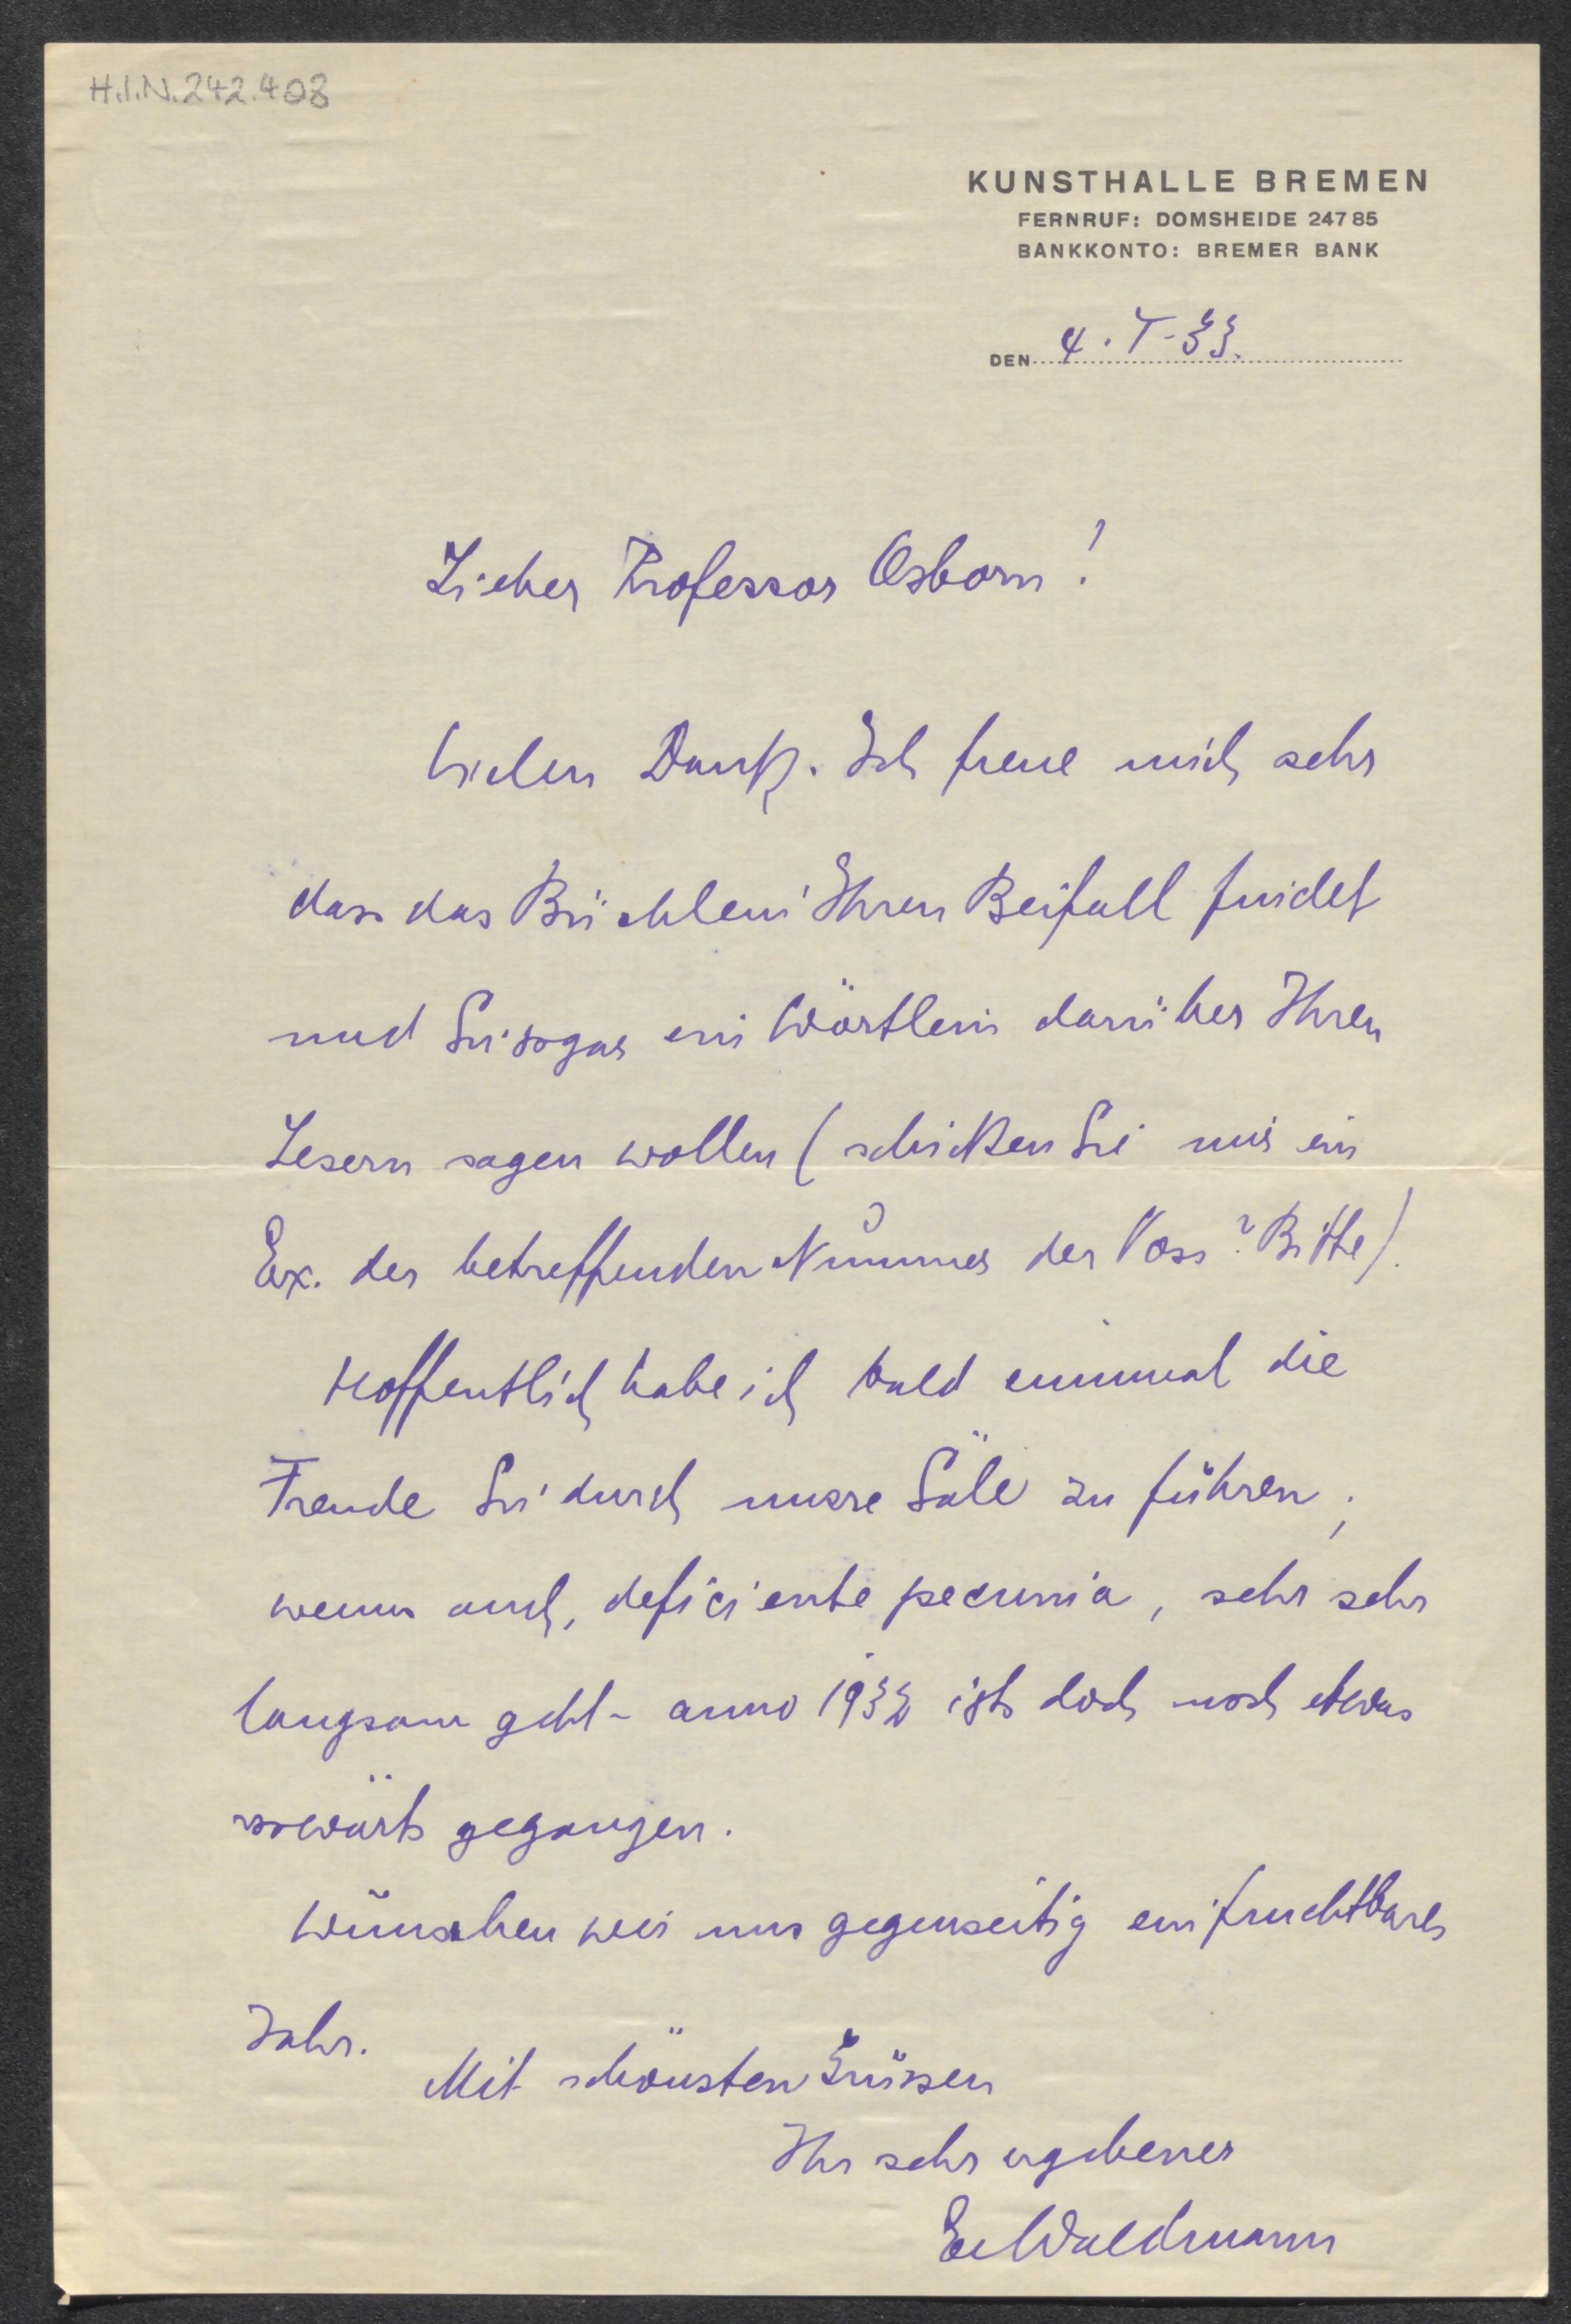 H.I.N.242.408
KUNSTHALLE BREMEN
FERNRUF: DOMSHEIDE 247 85
BANKKONTO: BREMER BANK
DEN 4. I. 33.
Lieber Professor Osborn!
Vielen Dank. Ich freue mich sehr
dass das Büchlein Ihren Beifall findet
und Sie sogar ein Wörtlein darüber Ihren
Lesern sagen wollen (schicken Sie mir ein
Ex. der betreffenden Nummer der Voss? Bitte).
Hoffentlich habe ich bald einmal die
Freude Sie durch unsre Säle zu führen;
wenns auch, deficiente pecunia, sehr sehr
langsam geht - anno 1932 ists doch noch etwas
vorwärts gegangen.
Wünschen wir uns gegenseitig ein fruchtbares
Jahr.
Mit schönsten Grüssen
Ihr sehr ergebener
E. Waldmann